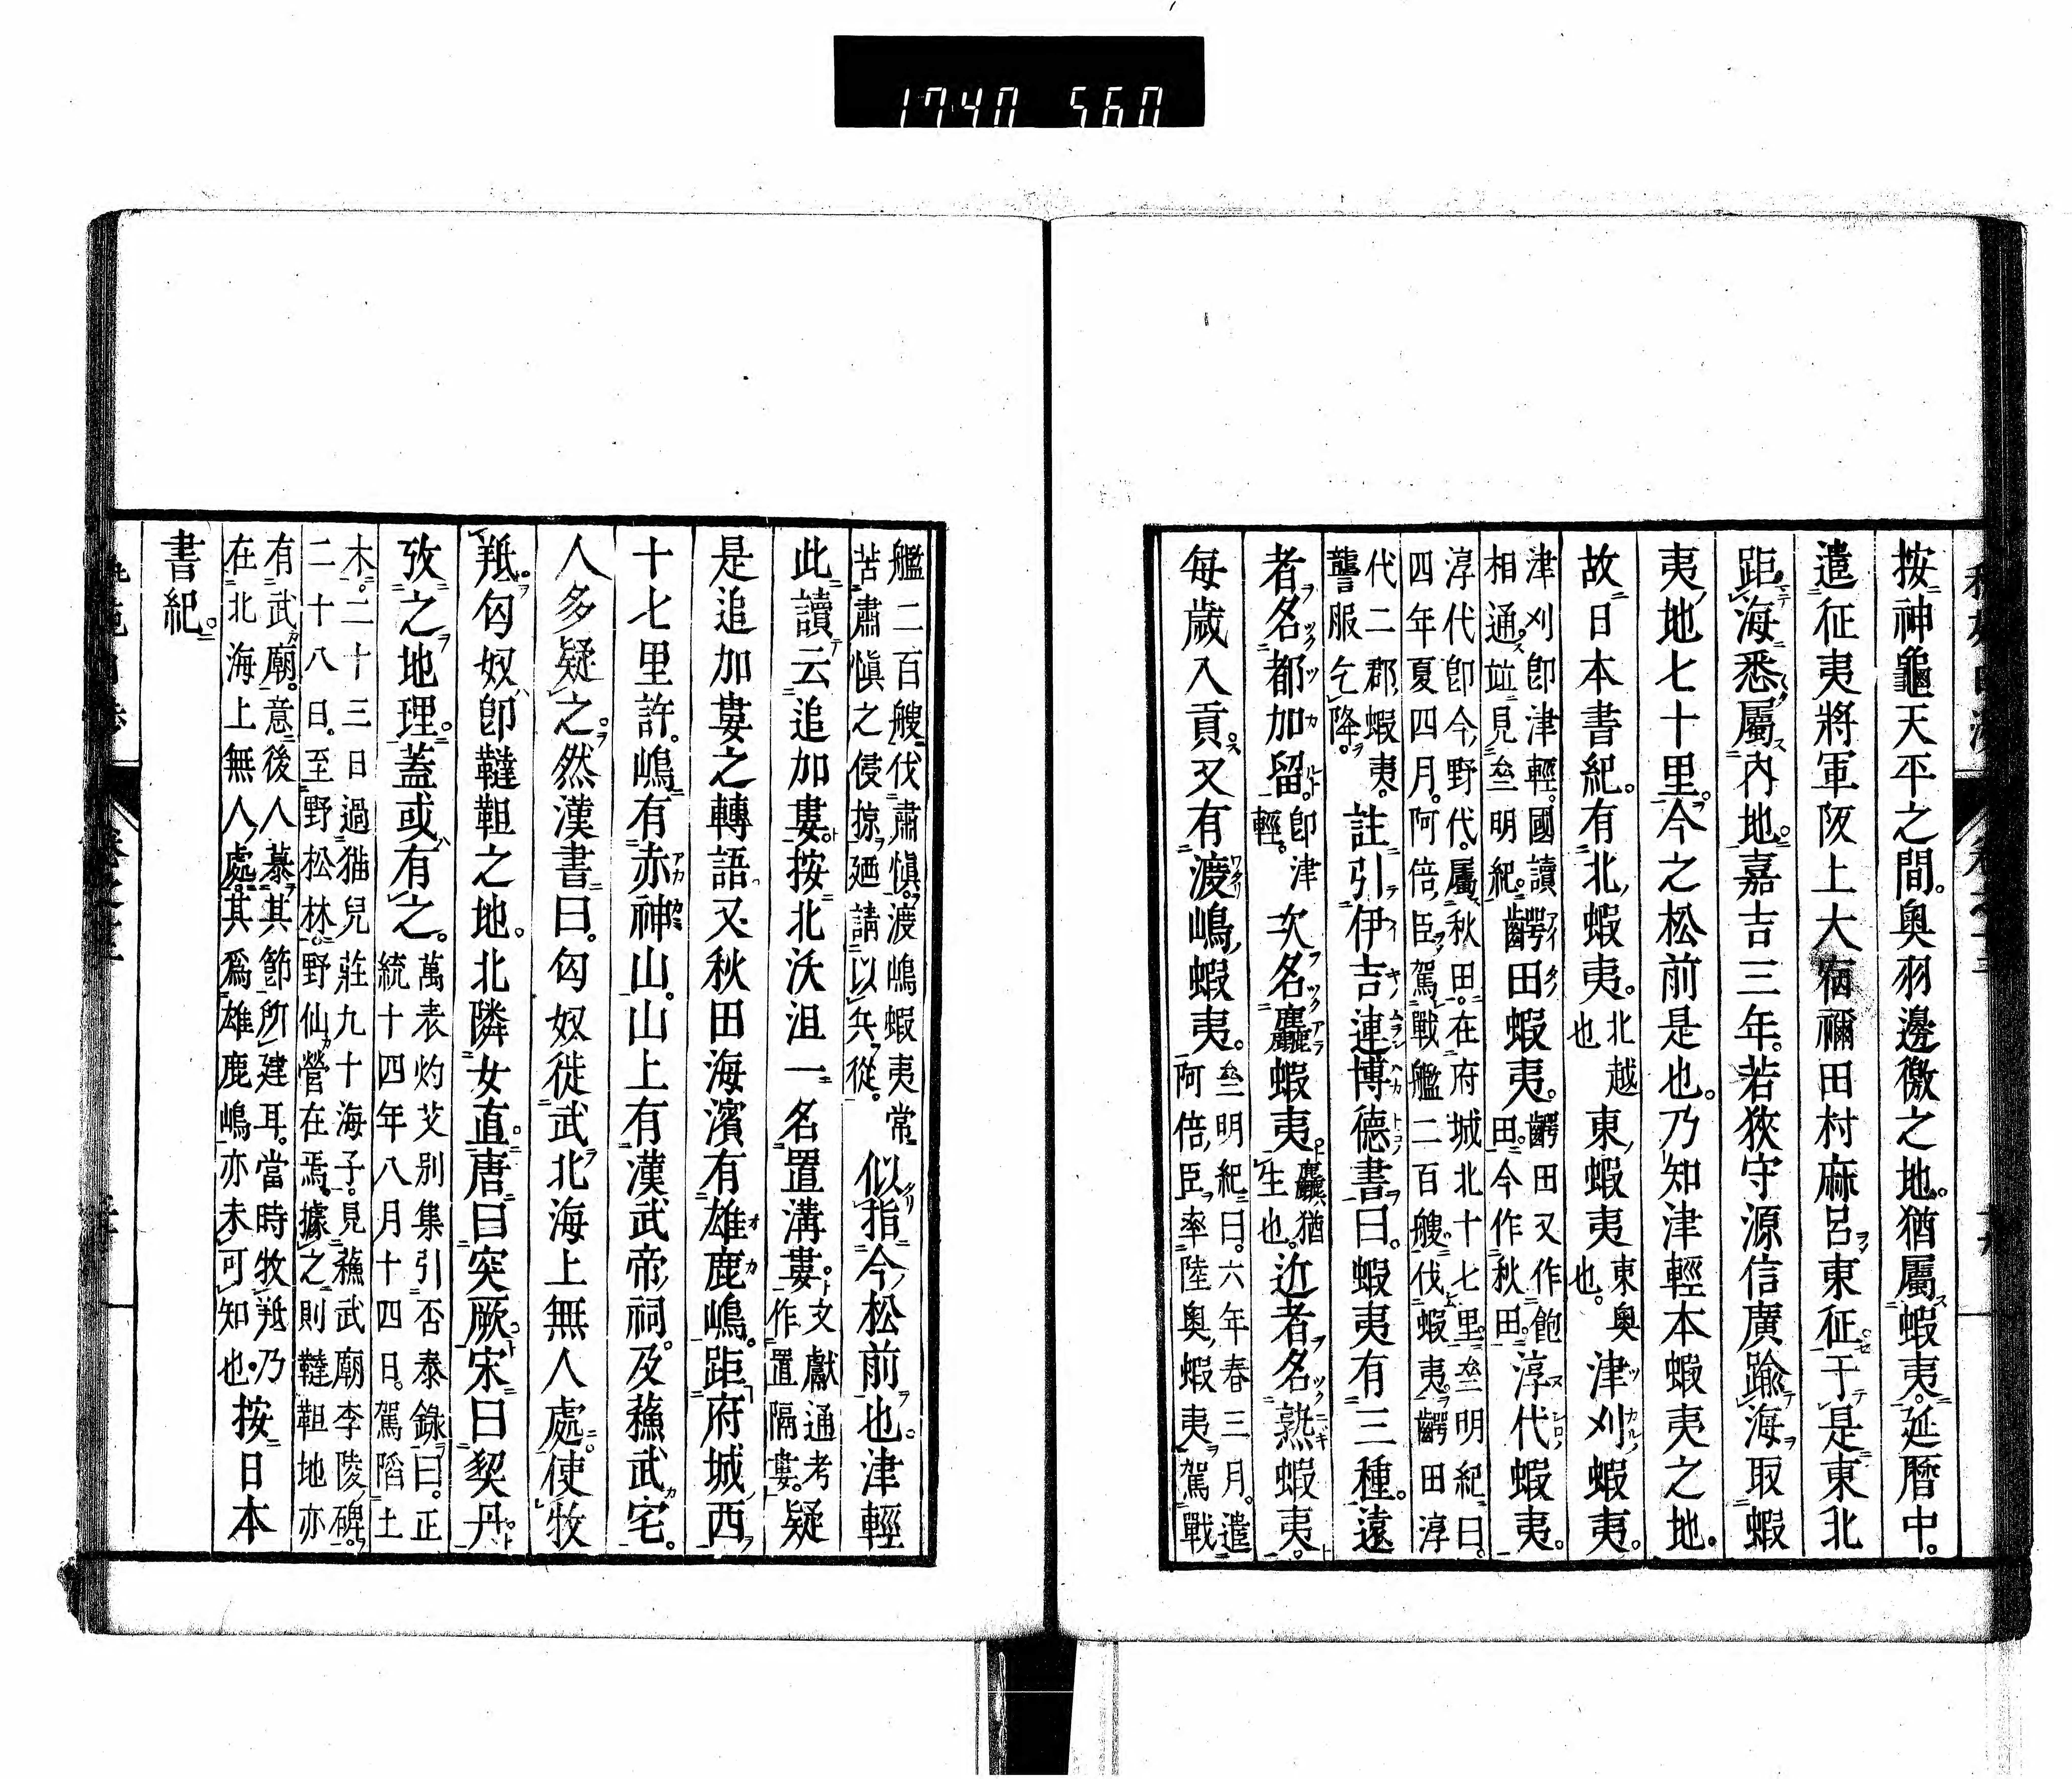 1740 560
按神龜天平之間。奧羽邊徼之地。猶屬蝦夷。延曆中。
遣征夷將軍阪上大宿禰田村麻呂東征。于是東北
距海悉屬內地。嘉吉三年。若狹守源信廣踰海取蝦
夷地七十里。今之松前是也。乃知津輕本蝦夷之地。
故日本書紀。有北蝦夷。北越也東蝦夷東奧也。津刈蝦夷。
津刈卽津輕。國讀相通。竝見齊明紀。齶田蝦夷。齶田又作飽田。今作秋田。淳代蝦夷。
淳代卽今野代。屬秋田。在府城北十七里。齊明紀曰。
四年夏四月。阿倍臣駕戰艦二百艘伐蝦夷。齶田淳
代二郡蝦夷。讋服乞降。註引伊吉連博德書曰。蝦夷有三種。遠
者名都加留。卽津輕。次名麤蝦夷。麤獷猶生也。近者名熟蝦夷。
每歲入貢。又有渡嶋蝦夷。齊明紀曰。六年春三月。遣阿倍臣率陸奧蝦夷駕戰
艦二百艘伐肅愼。渡嶋蝦夷常苦肅愼之侵掠廼請以兵從。似指今松前也。津輕
此讀云追加婁。按北沃沮一名置溝婁。文獻通考作置隔婁。疑
是追加婁之轉語。又秋田海濱有雄鹿嶋。距府城西
十七里許。嶋有赤神山。山上有漢武帝祠。及蘓武宅。
人多疑之。然漢書曰。匈奴徙武北海上無人處。使牧
羝。匈奴卽韃靼之地。北隣女直。唐曰突厥。宋曰契丹。
攷之地理。蓋或有之。萬表灼艾別集引否泰錄曰。正統十四年八月十四日。駕陷土
木。二十三日過猫兒莊九十海子。見蘓武廟李陵碑。
二十八日。至野松林。野仙營在焉。據之則韃靼地亦
有武廟。意後人慕其節所建耳。當時牧羝乃
在北海上無人處。其爲雄鹿嶋亦未可知也。按日本
書紀。